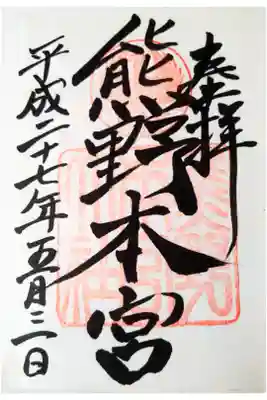 奉拝
熊野本宮
平成二十七年五月二日